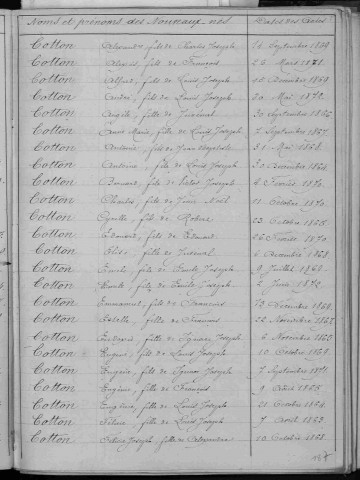 Noms et prénoms des Nouveaux nés. Dates des Actes
Cotton Alexandre, fils de Charles Joseph 14 Septembre 1864
Cotton Alexis, fils de François 24 Mars 1871
Cotton Alfred, fils de Louis Joseph 15 Décembre 1869
Cotton André, fils de Louis Joseph 20 Mai 1872
Cotton Angèle, fille de Juvénal 30 Septembre
Cotton Anne Marie, fille de Louis Joseph 7 Septembre 1867
Cotton Antoine, fils de Jean Baptiste 31 Mai
Cotton Antoine, fils de Louis Joseph 30 Décembre 1864
Cotton Bernard, fils de Joseph 4 Février 1870
Cotton Charles, fils de Noël 11 Octobre 1870
Cotton Cyrille, fils de Robert 23 Octobre 1868
Cotton Edmond, fils de Edmond 26 Février 1870
Cotton Elise, fille de Juvénal 6 Décembre 1868
Cotton Emile, fils de Emile Joseph 9 Juillet 1869
Cotton Emile, fils de Emile Joseph 2 Juin 1872
Cotton Emmanuel, fils de François 13 Novembre 1869
Cotton Estelle, fille de François 22 Novembre 1865
Cotton fille de Joseph 6 Novembre 1865
Cotton Eugène, fils de Louis Joseph 10 Octobre 1869
Cotton Eugénie, fille de Joseph 7 Septembre 1871
Cotton Eugénie, fille de François 9 Avril 1865
Cotton Eugénie, fille de Louis Joseph 21 Octobre 1864
Cotton fille de Louis Joseph 7 Avril 1863
Cotton Joseph, fille de Alexandre 10 Octobre 1868